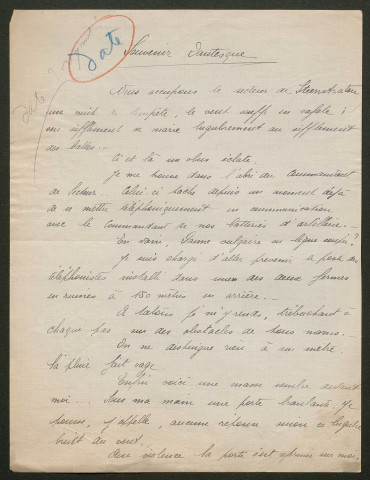 Date
Date
Souvenir Dantesque
Nous occupons le secteur de Steenstraate
une nuit de tempête, le vent souffle en rafale ;
son sifflement se marie lugubrement au sifflement
des balles...
Ici et là un obus éclate.
Je me trouve dans l'abri du commandant
de secteur. Celui ci tache depuis un moment déjà
de se mettre téléphoniquement en communication
avec le commandant de nos batteries d'artillerie...
En vain,
Je suis chargé d'aller prévenir le poste des
téléphonistes installé dans une des deux fermes
en ruines à 150 mètres en arrière...
A tatons je m'y rends, trébuchant à
chaque pas sur des obstacles de tous noms.
On ne distingue rien à un mètre.
La pluie fait rage.
Enfin voici une masse sombre devant
moi... Sous ma main une porte branlante. Je
pousse, j'appelle, aucune réponse sinon le lugubre
bruit du vent...
Avec violence la porte s'est